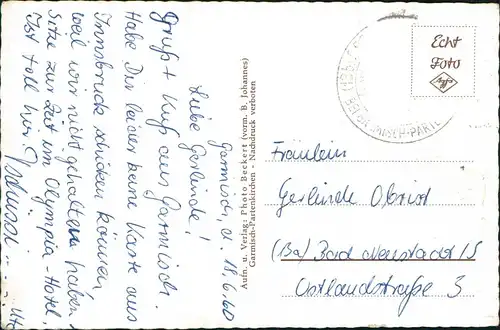 Garmisch, d. 18.6.60
Liebe Gerlinde!
Gruß + Kuß aus Garmisch.
Habe Dir leider keine Karte aus
Innsbruck schicken können,
weil wir nicht gehalten haben.
Sitze zur Zeit im Olympia-Hotel.
Ist toll hier.
Aufn. u. Verlag: Photo Beckert (vorm. B. Johannes)
Garmisch-Partenkirchen • Nachdruck verboten
Echt
Foto
Agfa
Fräulein
Gerlinde Obrist
(13a) Bad Neustadt/S
Ostlandstraße 3